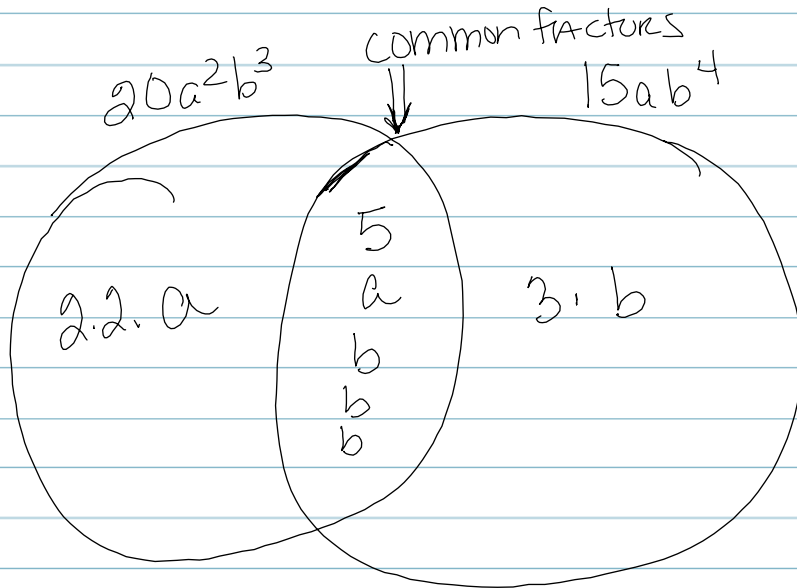 common factors
20a²b³
15ab⁴
5
a
2·2·a
3·b
b
b
b